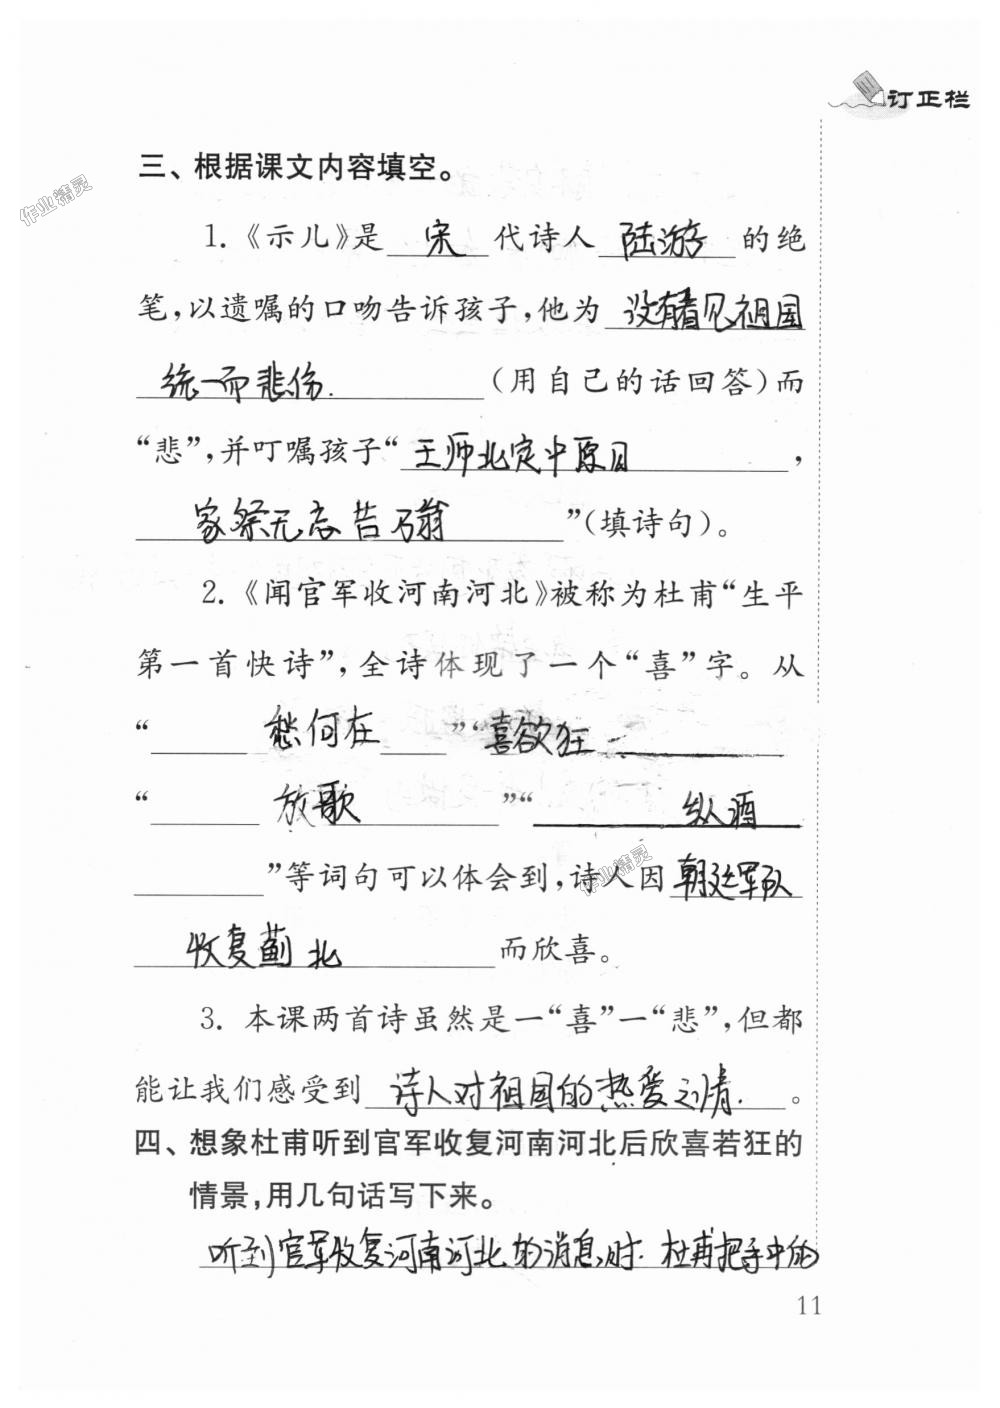 订正栏
三、根据课文内容填空。
1.《示儿》是 宋 代诗人 陆游 的绝
笔,以遗嘱的口吻告诉孩子,他为 没有看见祖国
统一而悲伤. (用自己的话回答)而
“悲”,并叮嘱孩子“ 王师北定中原日 ,
家祭无忘告乃翁 ”(填诗句)。
2.《闻官军收河南河北》被称为杜甫“生平
第一首快诗”,全诗体现了一个“喜”字。从
“ 愁何在 ”“ 喜欲狂
“ 放歌 ”“ 纵酒
”等词句可以体会到,诗人因 朝廷军队
收复蓟北 而欣喜。
3. 本课两首诗虽然是一“喜”一“悲”,但都
能让我们感受到 诗人对祖国的热爱之情. 。
四、想象杜甫听到官军收复河南河北后欣喜若狂的
情景,用几句话写下来。
听到官军收复河南河北的消息时. 杜甫把手中的
11
作业精灵
作业精灵